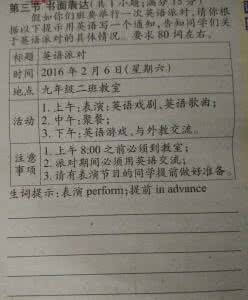 第三节 书面表达(共1小题;满分15分)
假如你们班要举行一次英语派对,请你根
据以下提示用英语写一个通知,告知同学们关
于英语派对的具体情况。要求80词左右。
标题 英语派对
时间 2016年2月6日(星期六)
地点 九年级二班教室
活动
1.上午:表演:英语戏剧、英语歌曲;
2.中午:聚餐;
3.下午:英语游戏、与外教交流。
注意事项
1.上午8:00之前必须到教室;
2.派对期间必须用英语交流;
3.请有表演节目的同学提前做好准备。
生词提示:表演 perform;提前 in advance